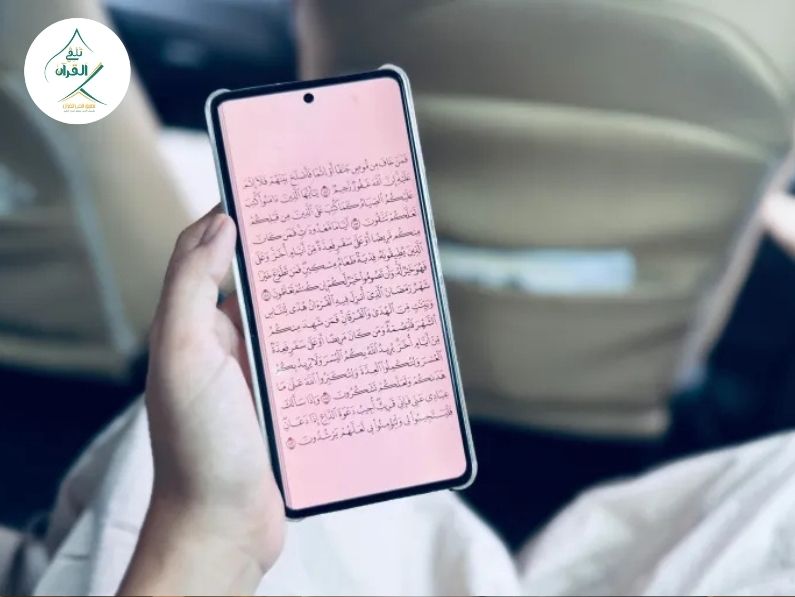 تلقي
القرآن
فَمَنْ خَافَ مِن مُّوصٍ جَنَفًا أَوْ إِثْمًا فَأَصْلَحَ بَيْنَهُمْ فَلَا إِثْمَ
عَلَيْهِ إِنَّ اللَّهَ غَفُورٌ رَّحِيمٌ يَا أَيُّهَا الَّذِينَ ءَامَنُوا كُتِبَ
عَلَيْكُمُ الصِّيَامُ كَمَا كُتِبَ عَلَى الَّذِينَ مِن قَبْلِكُمْ
لَعَلَّكُمْ تَتَّقُونَ أَيَّامًا مَّعْدُودَاتٍ فَمَن كَانَ
مِنكُم مَّرِيضًا أَوْ عَلَىٰ سَفَرٍ فَعِدَّةٌ مِّنْ أَيَّامٍ أُخَرَ وَعَلَى
الَّذِينَ يُطِيقُونَهُ فِدْيَةٌ طَعَامُ مِسْكِينٍ فَمَن تَطَوَّعَ خَيْرًا
فَهُوَ خَيْرٌ لَّهُ وَأَن تَصُومُوا خَيْرٌ لَّكُمْ إِن كُنتُمْ تَعْلَمُونَ
شَهْرُ رَمَضَانَ الَّذِي أُنزِلَ فِيهِ الْقُرْءَانُ هُدًى لِّلنَّاسِ
وَبَيِّنَاتٍ مِّنَ الْهُدَىٰ وَالْفُرْقَانِ فَمَن شَهِدَ مِنكُمُ
الشَّهْرَ فَلْيَصُمْهُ وَمَن كَانَ مَرِيضًا أَوْ عَلَىٰ سَفَرٍ فَعِدَّةٌ
مِّنْ أَيَّامٍ أُخَرَ يُرِيدُ اللَّهُ بِكُمُ الْيُسْرَ وَلَا يُرِيدُ بِكُمُ
الْعُسْرَ وَلِتُكْمِلُوا الْعِدَّةَ وَلِتُكَبِّرُوا اللَّهَ عَلَىٰ مَا
هَدَاكُمْ وَلَعَلَّكُمْ تَشْكُرُونَ وَإِذَا سَأَلَكَ
عِبَادِي عَنِّي فَإِنِّي قَرِيبٌ أُجِيبُ دَعْوَةَ الدَّاعِ إِذَا دَعَانِ
فَلْيَسْتَجِيبُوا لِي وَلْيُؤْمِنُوا بِي لَعَلَّهُمْ يَرْشُدُونَ